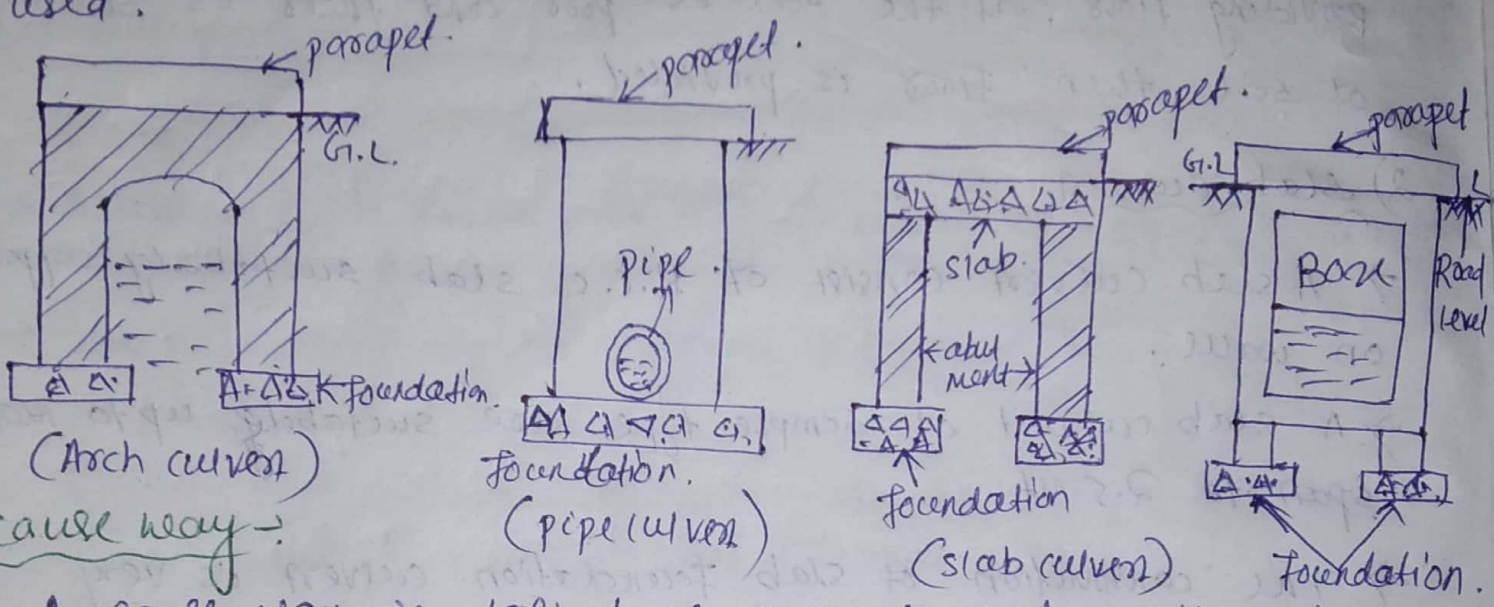 used.
parapet.
G.L.
foundation.
(Arch culvert)
parapet.
pipe.
foundation.
(pipe culvert)
parapet.
slab.
abut
ment
foundation
(slab culvert)
parapet
G.L
L
Box
Road
Level
foundation.
ause way →: